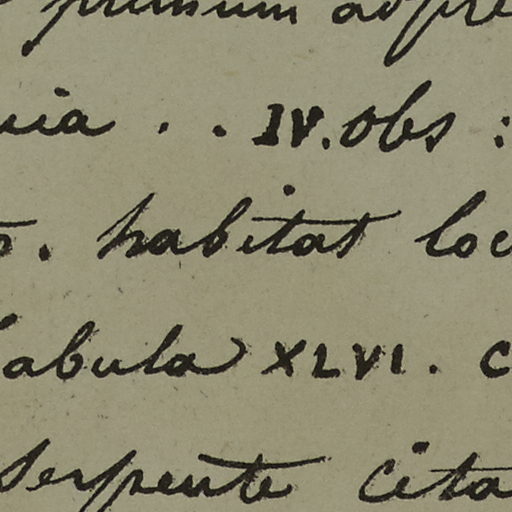 primum adpre
uia . . IV. Obs :
o. habitat loc
abula XLVI. C
serpente cita